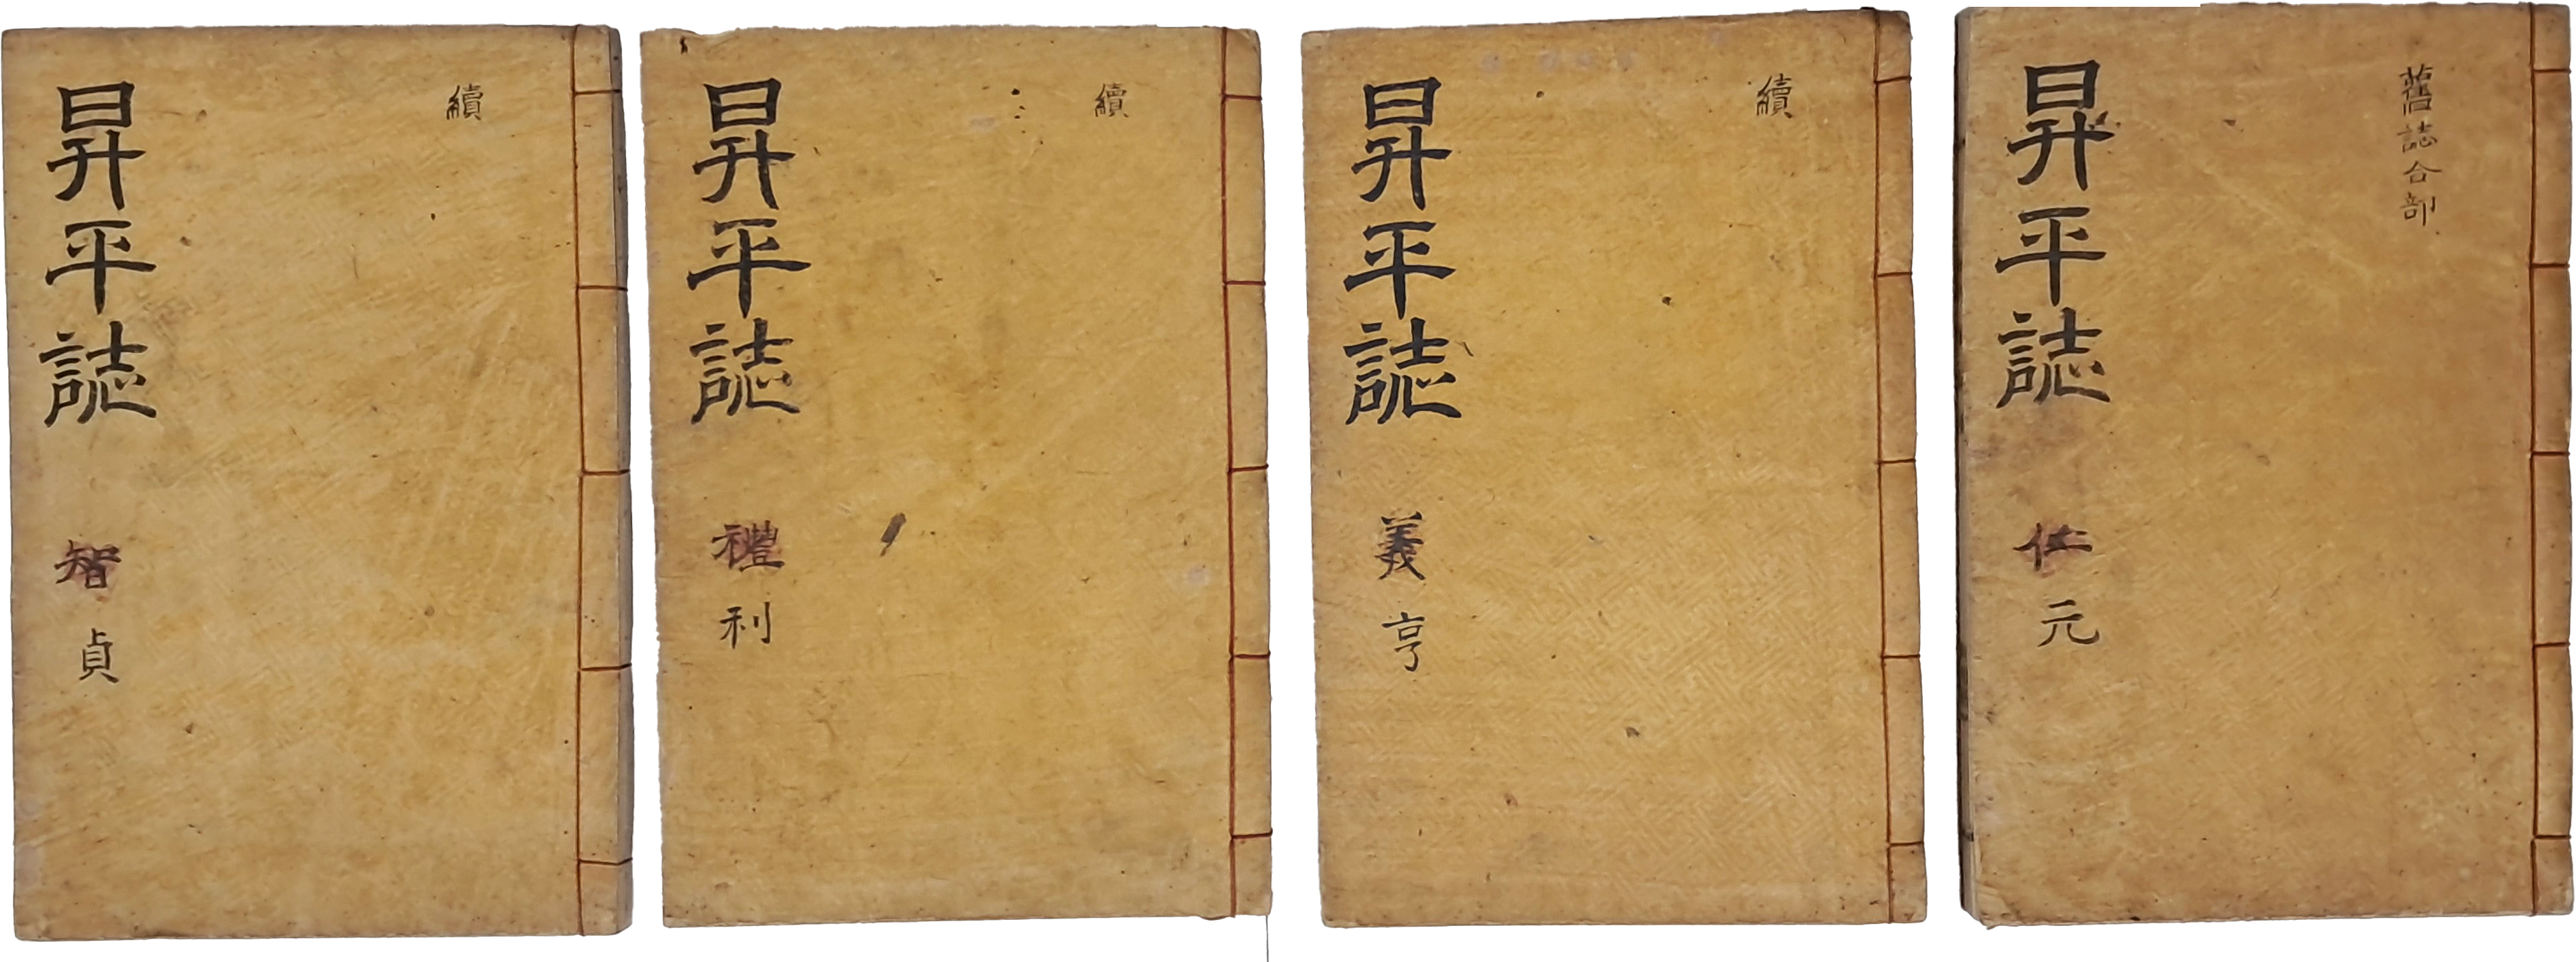 舊誌合部
昇平誌 仁 元
續
昇平誌 義 亨
續
昇平誌 禮 利
續
昇平誌 智 貞